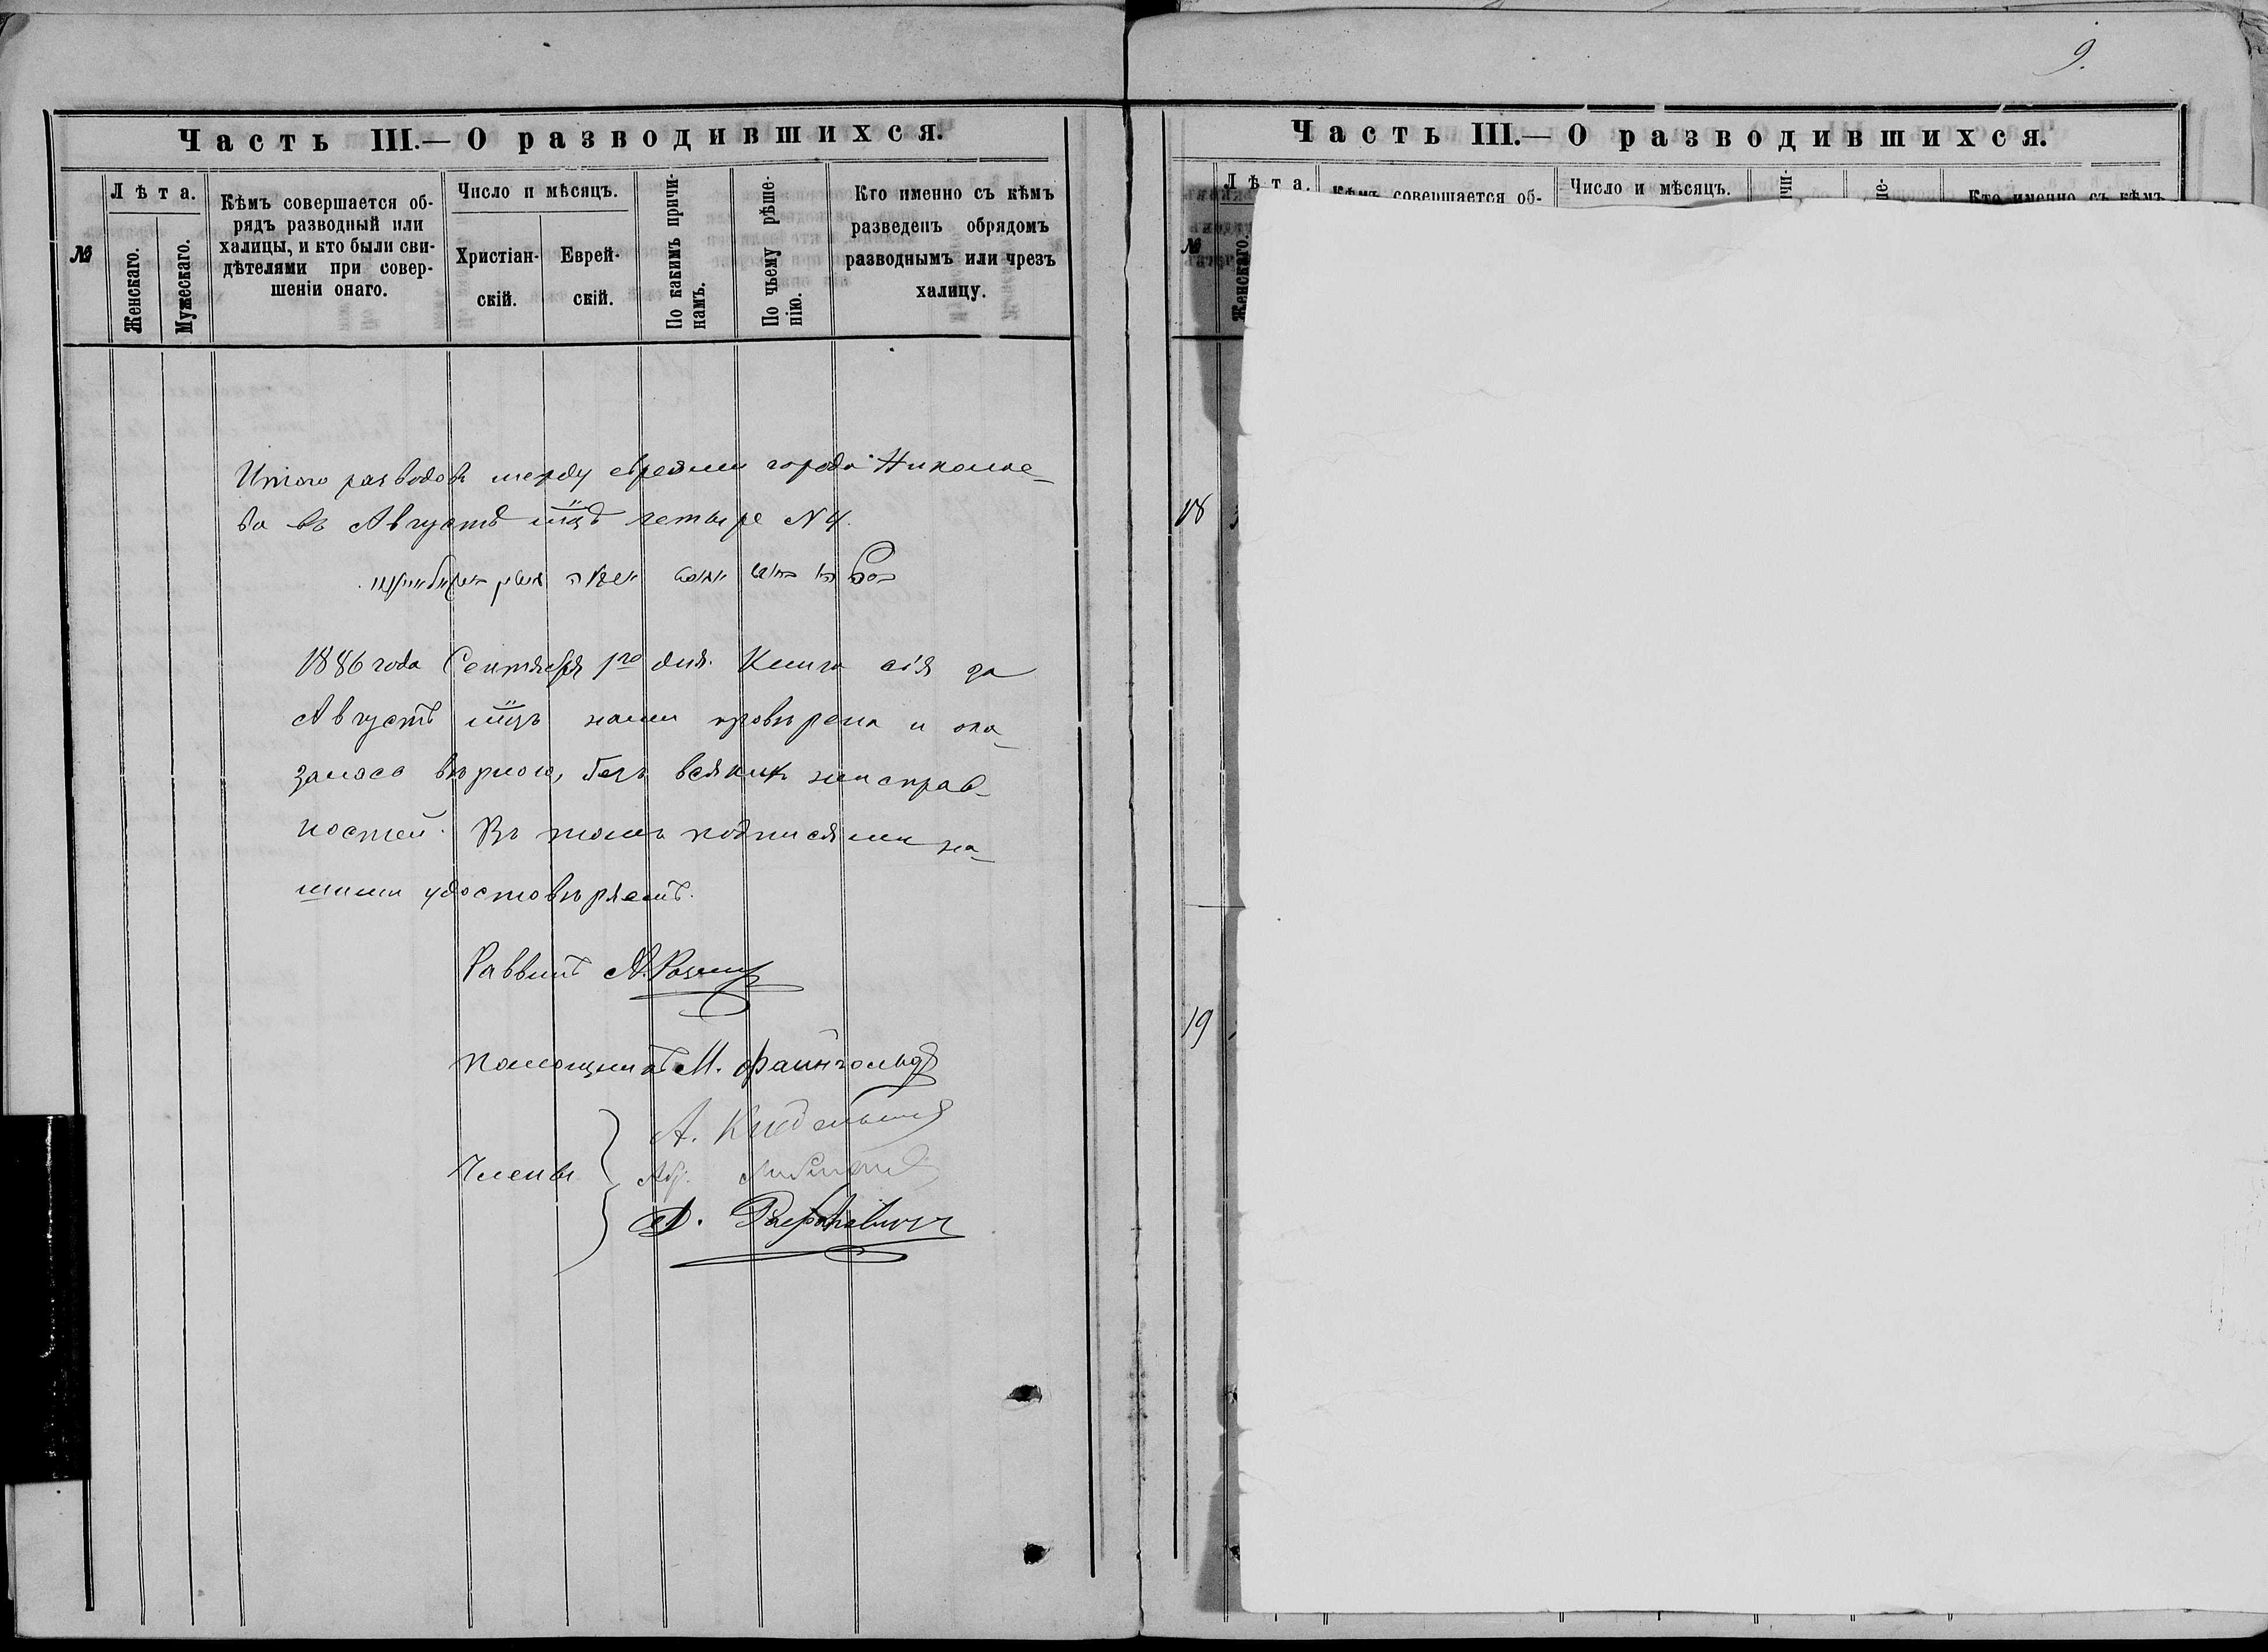 9.
Часть III.— О разводившихся.
№
Лѣта.
Женскаго.
Мужескаго.
Кѣмъ совершается об-
рядъ разводный или
халицы, и кто были сви-
дѣтелями при совер-
шеніи онаго.
Число и мѣсяцъ.
Христіан-
скій.
Еврей-
скій.
По какимъ причи-
намъ.
По чьему рѣше-
нію.
Кто именно съ кѣмъ
разведенъ обрядомъ
разводнымъ или чрезъ
халицу.
Итого разводовъ между евреями города Николае-
ва въ Августѣ м̃цѣ четыре N 4.
1886 года Сентября 1го дня. Книга сія за
Августъ м̃цъ нами провѣрена и ока-
залось вѣрною, безъ всякихъ неисправ-
ностей. Въ томъ подписями на-
шими удостовѣряемъ.
Раввинъ
Помощникъ М. Файнгольдъ
Члены
А.
Д. Рафаловичъ
Часть III.— О разводившихся.
№
Лѣта.
Женскаго.
Кѣмъ совершается об-
Число и мѣсяцъ.
чи-
ше-
Кто именно съ кѣмъ
18
19